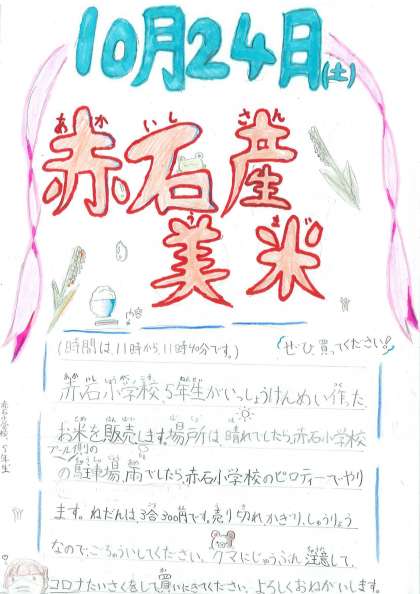 10月24日(土)
あか いし さん
赤石産
う ま
美米
(時間は、11時から、11時40分です。)
ぜひ、買ってください!
赤石小学校5年生がいっしょうけんめい作った
お米を販売します。場所は、晴れでしたら、赤石小学校
プール側の
の駐車場、雨でしたら、赤石小学校のピロティーでやり
ます。ねだんは、3合300円です。売り切れかぎり、しゅうりょう
なので、ごちゅういしてください。クマにじゅうぶん注意して、
コロナたいさくをして、買いにきてください。よろしくおねがいします。
赤石小学校、5年生